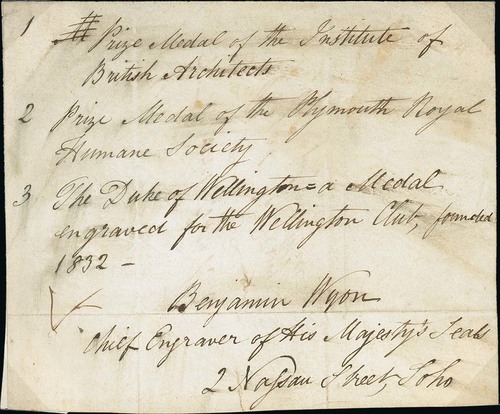 1 # Prize Medal of the Institute of
British Architects
2 Prize Medal of the Plymouth Royal
Humane Society
3 The Duke of Wellington = a Medal
engraved for the Wellington Club, founded
1832 –
Benjamin Wyon
Chief Engraver of His Majesty's Seals
2 Nassau Street, Soho